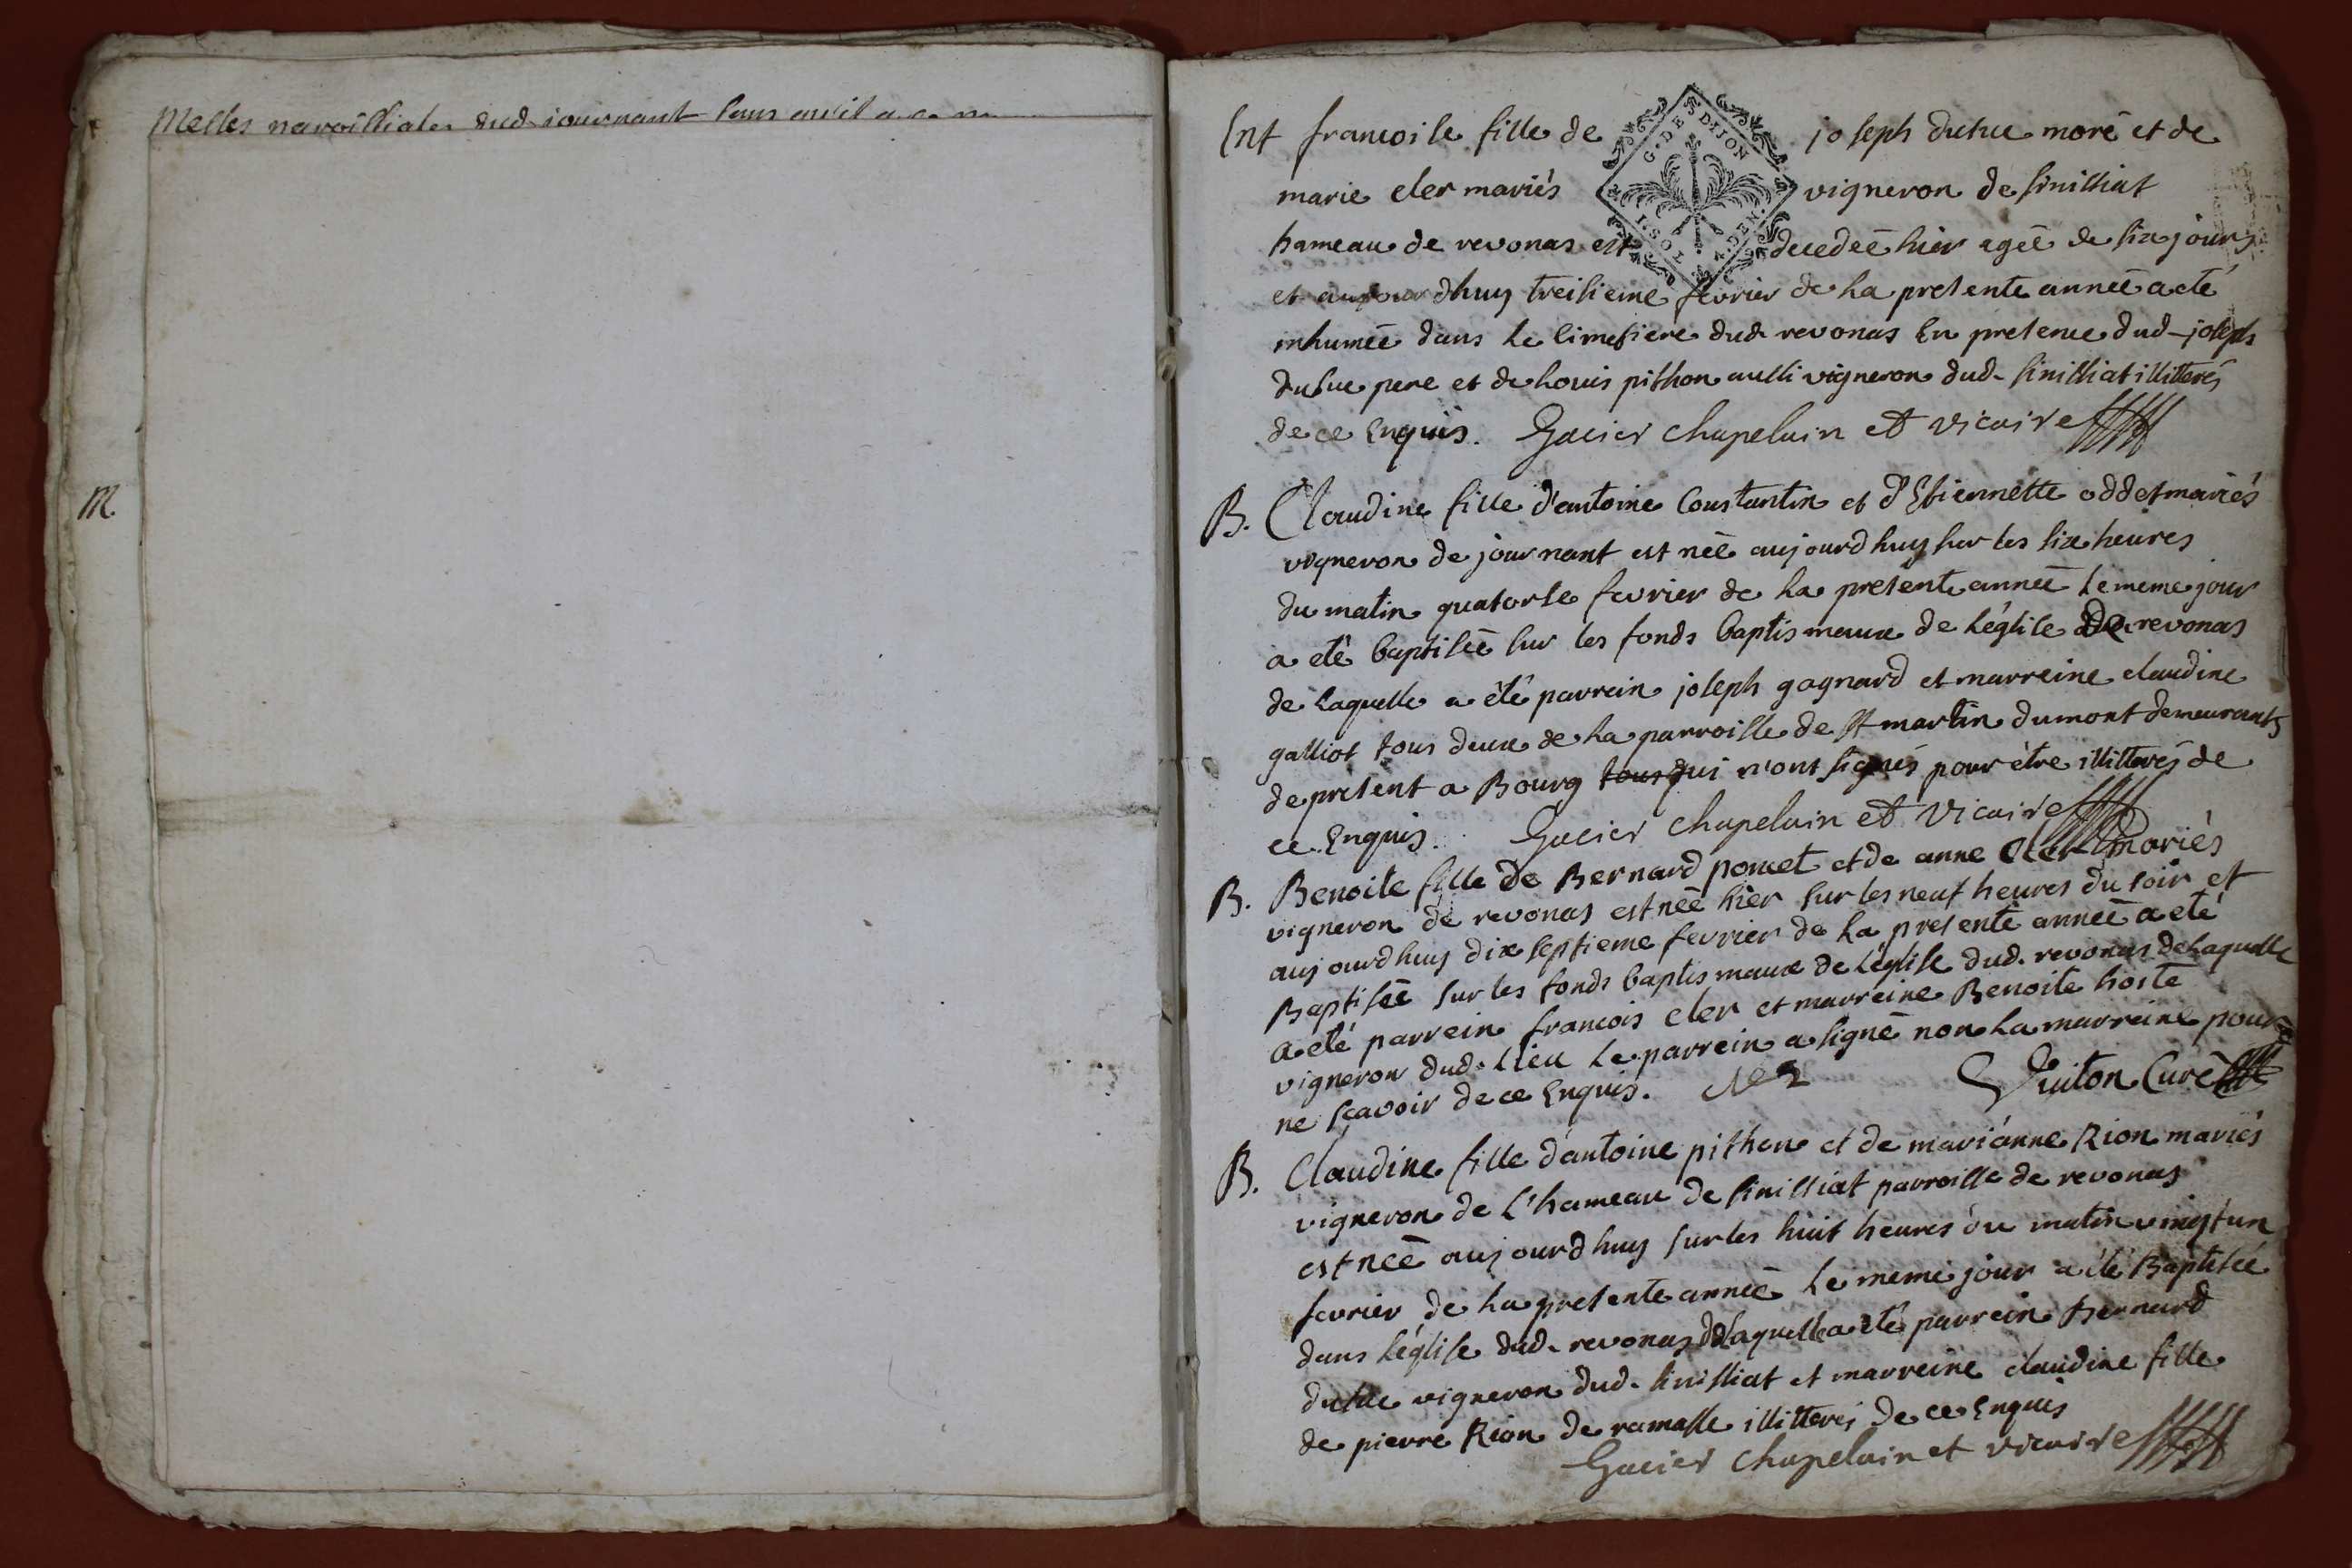 Messes parroissiales dud journant sans qu'il
M.
Ent francoise fille de joseph dusuc moré et de
marie cler mariés vigneron de sinissiat
hameau de revonas est decedeé hier ageé de six jours
et aujourdhuy treisieme fevrier de la presente anneé a eté
inhumeé dans le simetiere dud revonas En presence dud joseph
dusuc pere et de Louis pithon aussi vigneron dud. sinissiat illitterés
de ce Enquis. Gacier chapelain et vicaire
B. Claudine fille d'antoine Constantin et d'Estiennette oddet mariés
vigneron de journant est neé aujourdhuy sur les six heures
du matin quatorse fevrier de la presente anneé le meme jour
a eté baptiseé sur les fonds baptismaux de l'église de revonas
de laquelle a été parrein joseph gagnard et marreine claudine
galliot tous deux de la parroisse de st martin dumont demeurants
de present a Bourg tous qui n'ont signés pour être illitterés de
ce Enquis. Gacier chapelain et vicaire
B. Benoite fille de Bernard poncet et de anne Cler mariés
vigneron de revonas est neé hier sur les neuf heures du soir et
aujourdhuy dix septieme fevrier de la presente anneé a eté
Baptiseé sur les fonds baptismaux de Léglise dud. revonas de Laquelle
a eté parrein francois cler et marreine Benoite hoste
vigneron dud. Lieu Le parrein a signé non La marreine pour
ne scavoir de ce Enquis. Guiton Curé
B. Claudine fille d'antoine pithon et de marianne Rion mariés
vigneron de l'hameau de sinissiat parroisse de revonas
est neé aujourdhuy sur les huit heures du matin vingt un
fevrier de la presente anneé Le meme jour a été Baptiseé
dans l'église dud. revonas de Laquelle a eté parrein Bernard
dusuc vigneron dud. sinissiat et marreine claudine fille
de pierre Rion de ramasse illitterés de ce Enquis
Gacier chapelain et vicaire
G. DE DIJON